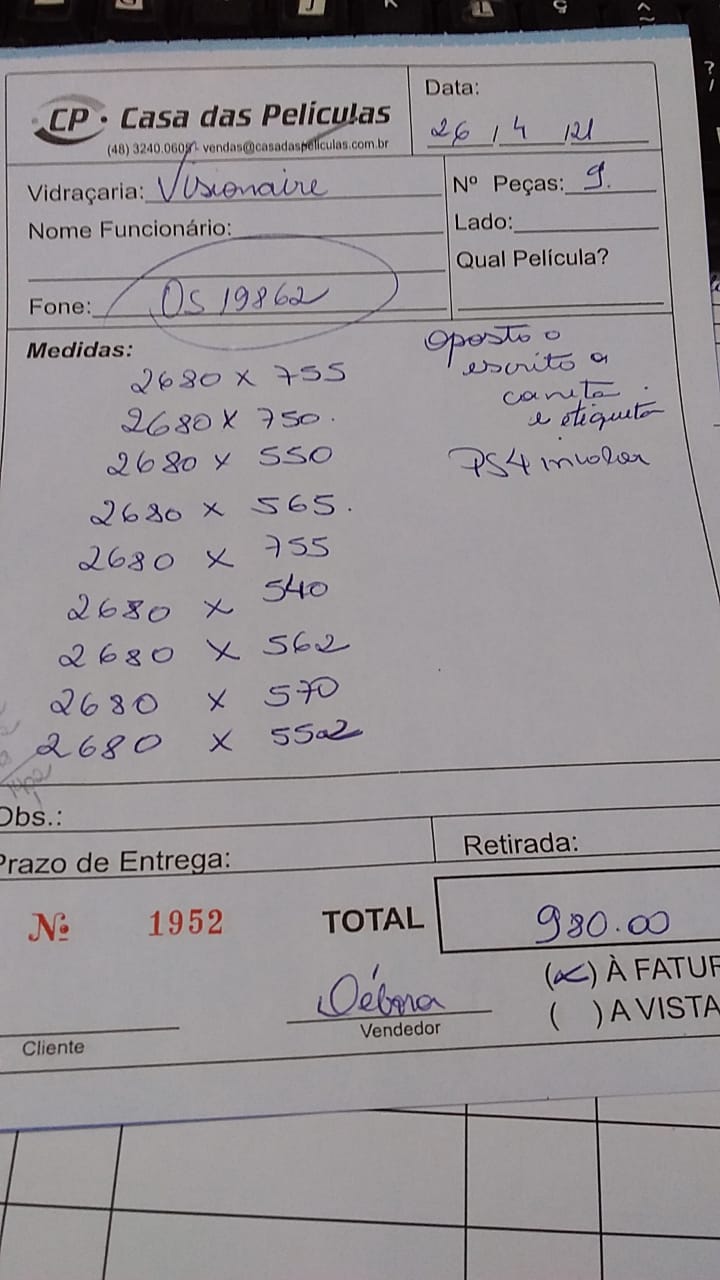 CP · Casa das Películas
(48) 3240.0605 - vendas@casadaspeliculas.com.br
Data:
26 / 4 / 21
Vidraçaria: Visionaire
Nº Peças: 9.
Nome Funcionário:
Lado:
Qual Película?
Fone: OS 19862
Medidas:
oposto o
escrito a
caneta
e etiqueta
PS4 incolor
2680 x 755
2680 x 750.
2680 x 550
2680 x 565.
2680 x 755
2680 x 540
2680 x 562
2680 x 570
2680 x 552
Obs.:
Prazo de Entrega:
Retirada:
Nº 1952
TOTAL 980.00
(x) À FATUR
( ) A VISTA
Débora
Cliente
Vendedor